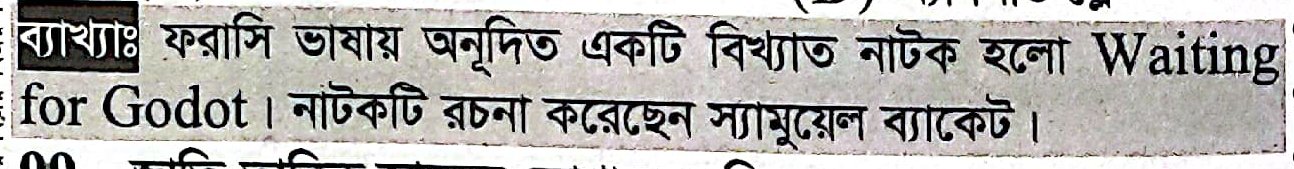 ব্যাখ্যাঃ ফরাসি ভাষায় অনূদিত একটি বিখ্যাত নাটক হলো Waiting
for Godot। নাটকটি রচনা করেছেন স্যামুয়েল ব্যাকেট।